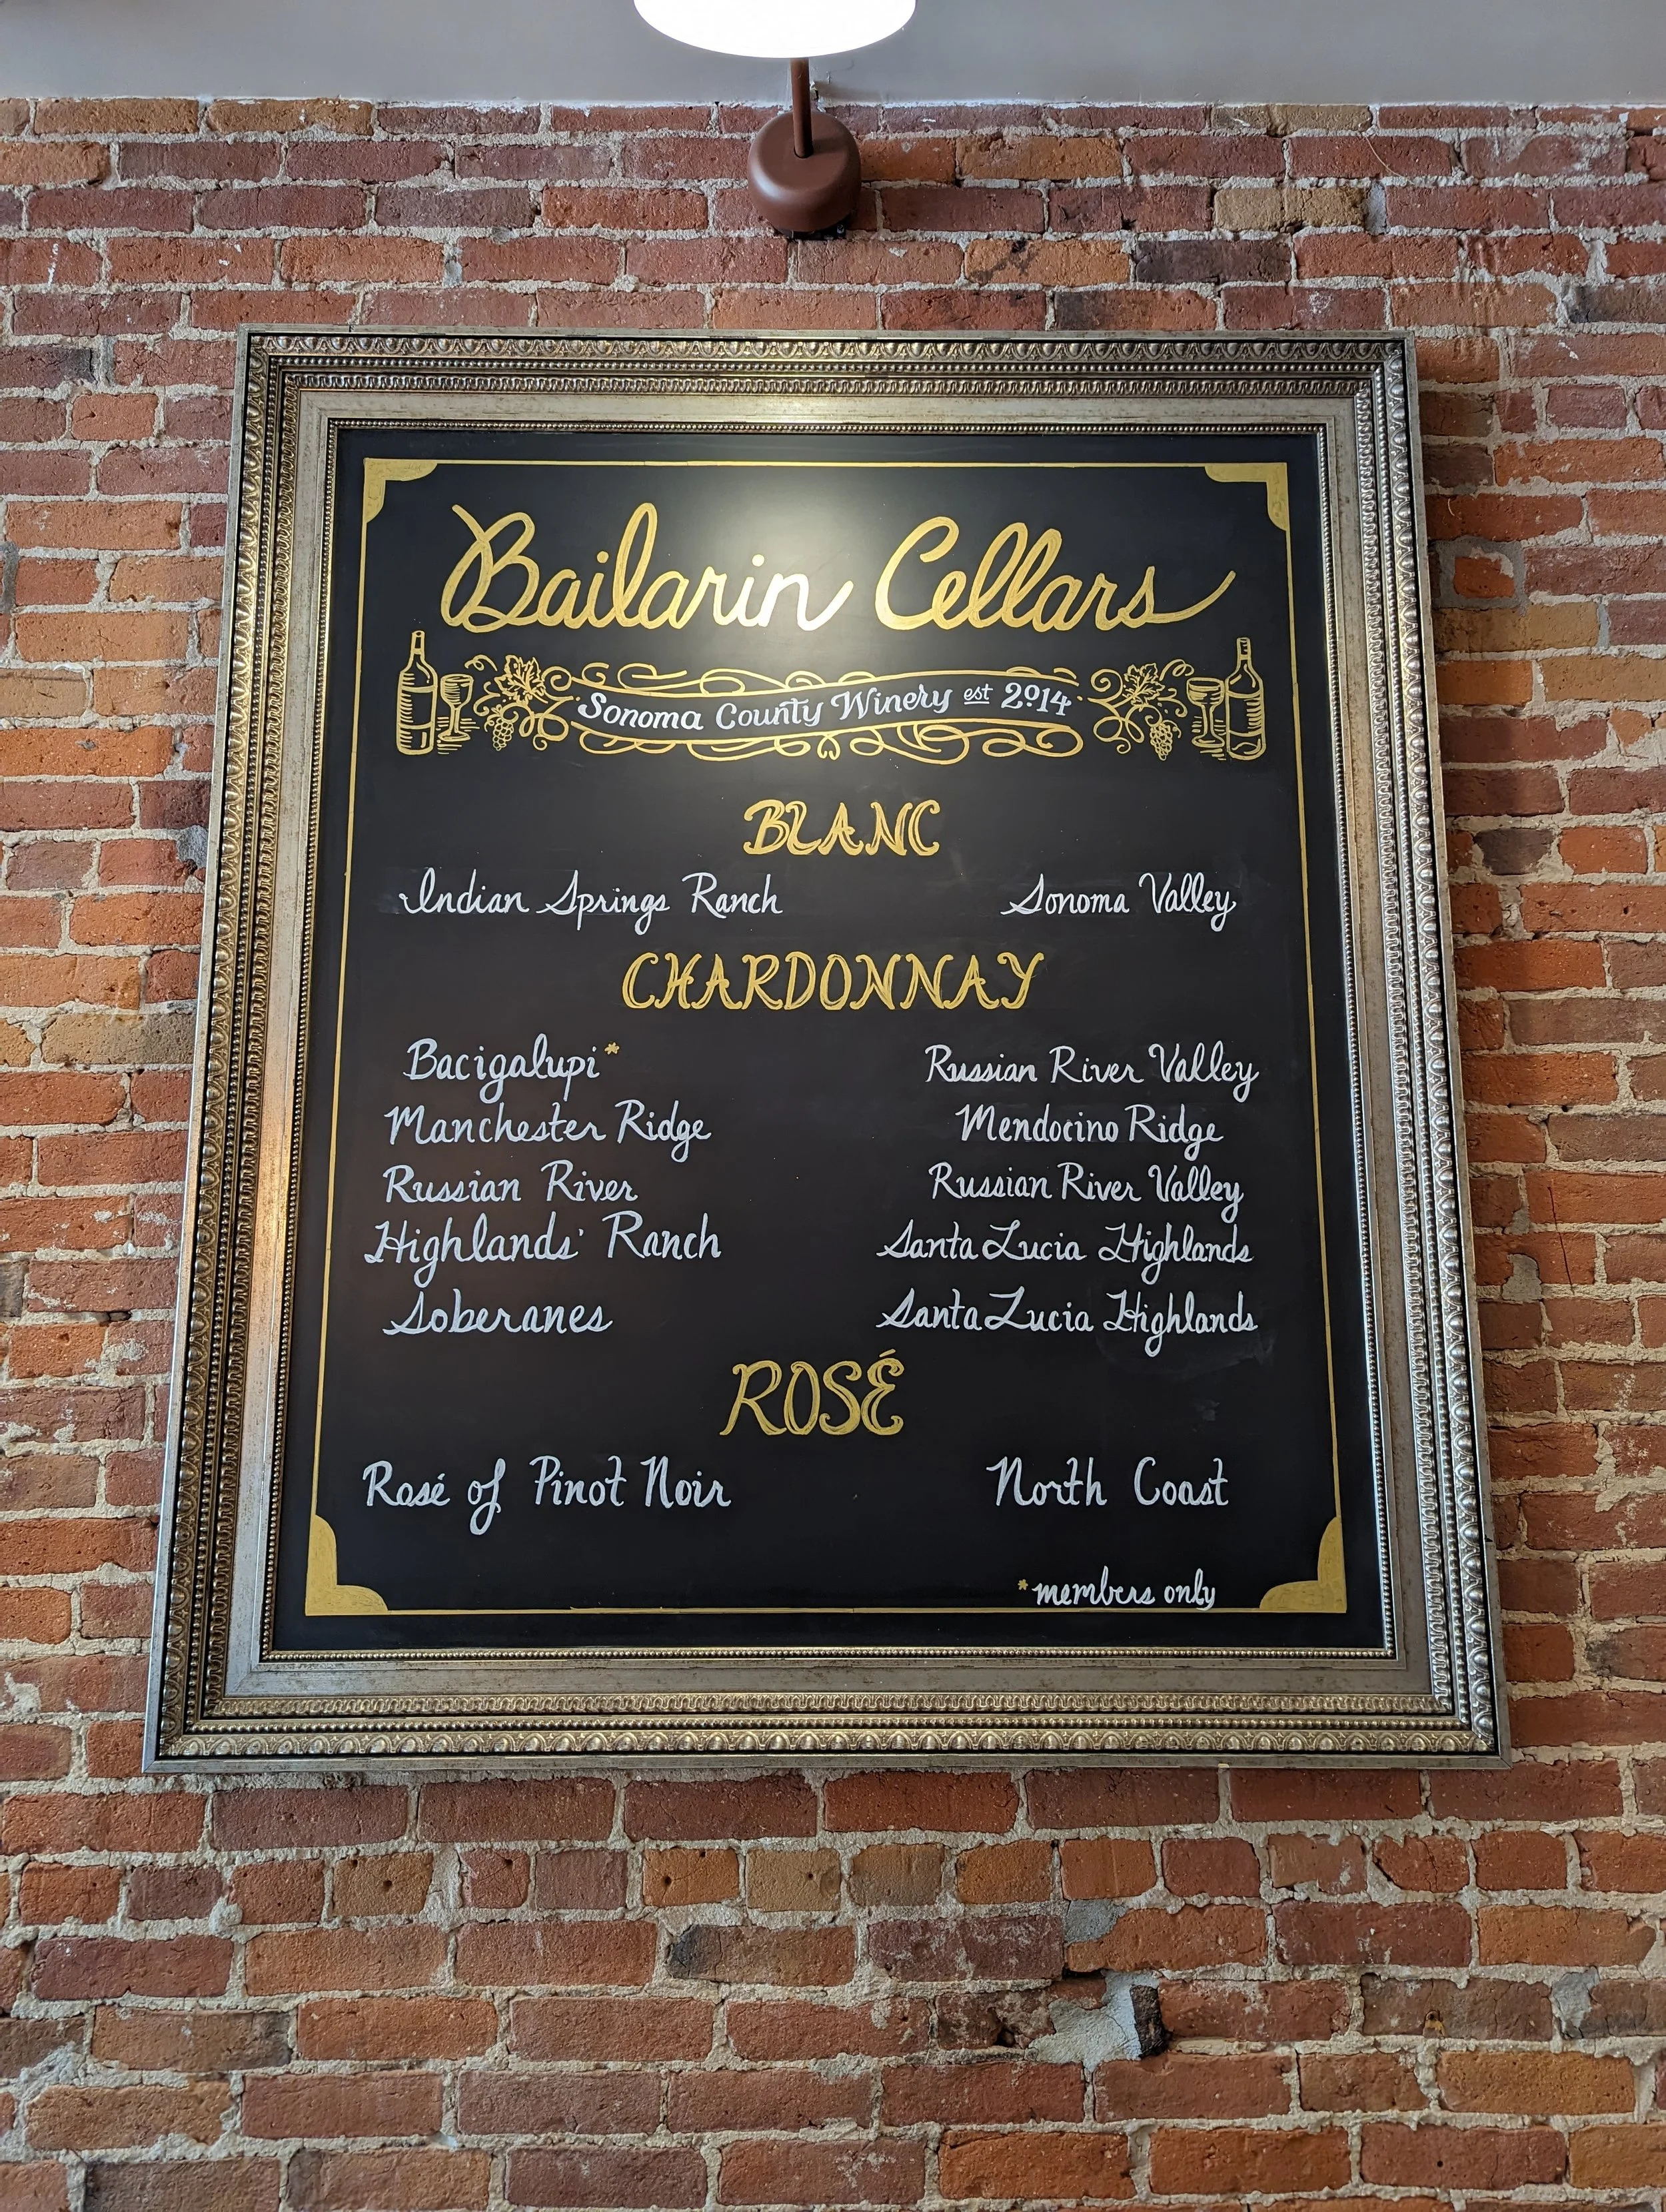 Bailarin Cellars
Sonoma County Winery est 2014
BLANC
Indian Springs Ranch Sonoma Valley
CHARDONNAY
Bacigalupi* Russian River Valley
Manchester Ridge Mendocino Ridge
Russian River Russian River Valley
Highlands' Ranch Santa Lucia Highlands
Soberanes Santa Lucia Highlands
ROSÉ
Rosé of Pinot Noir North Coast
*members only